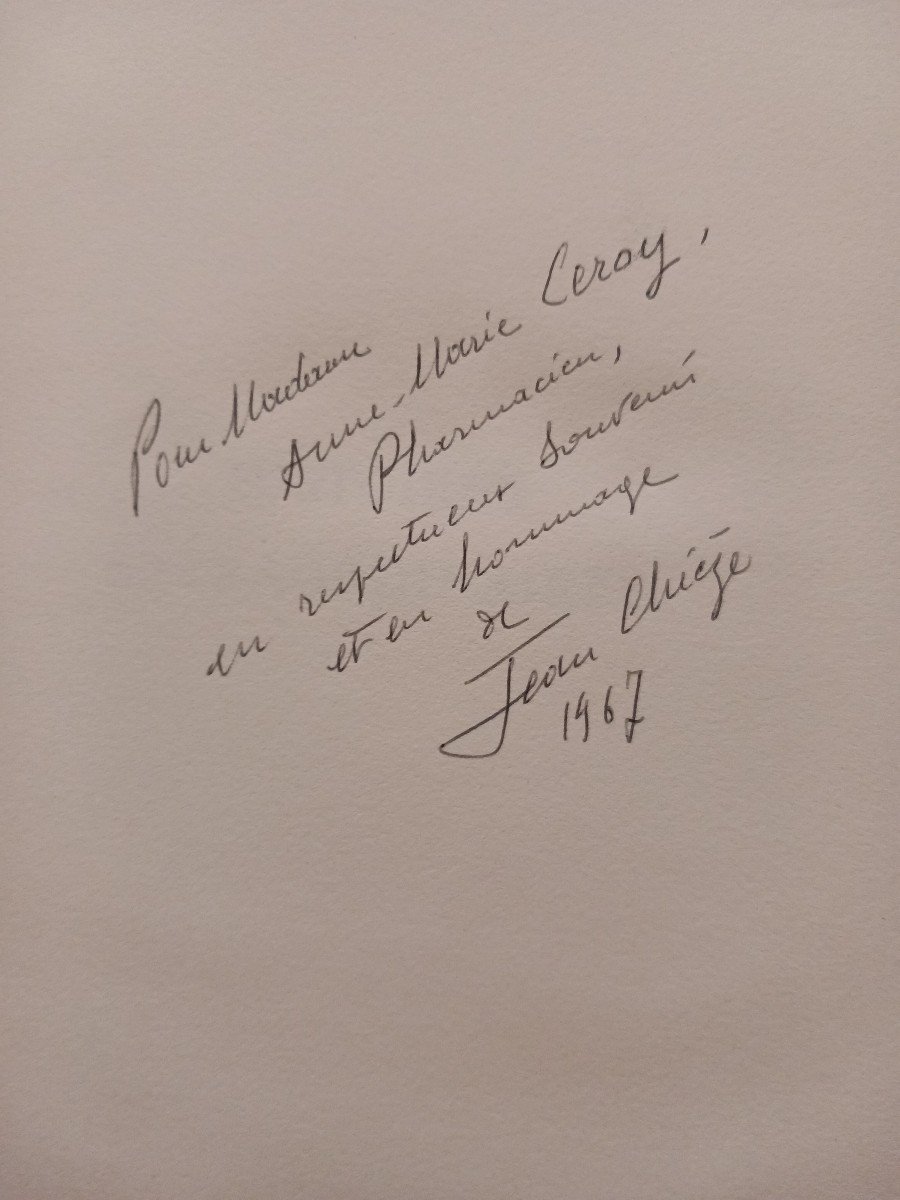 Pour Madame
Anne-Marie Leroy,
Pharmacien,
en respectueux souvenir
et en hommage
de
Jean Chièze
1967